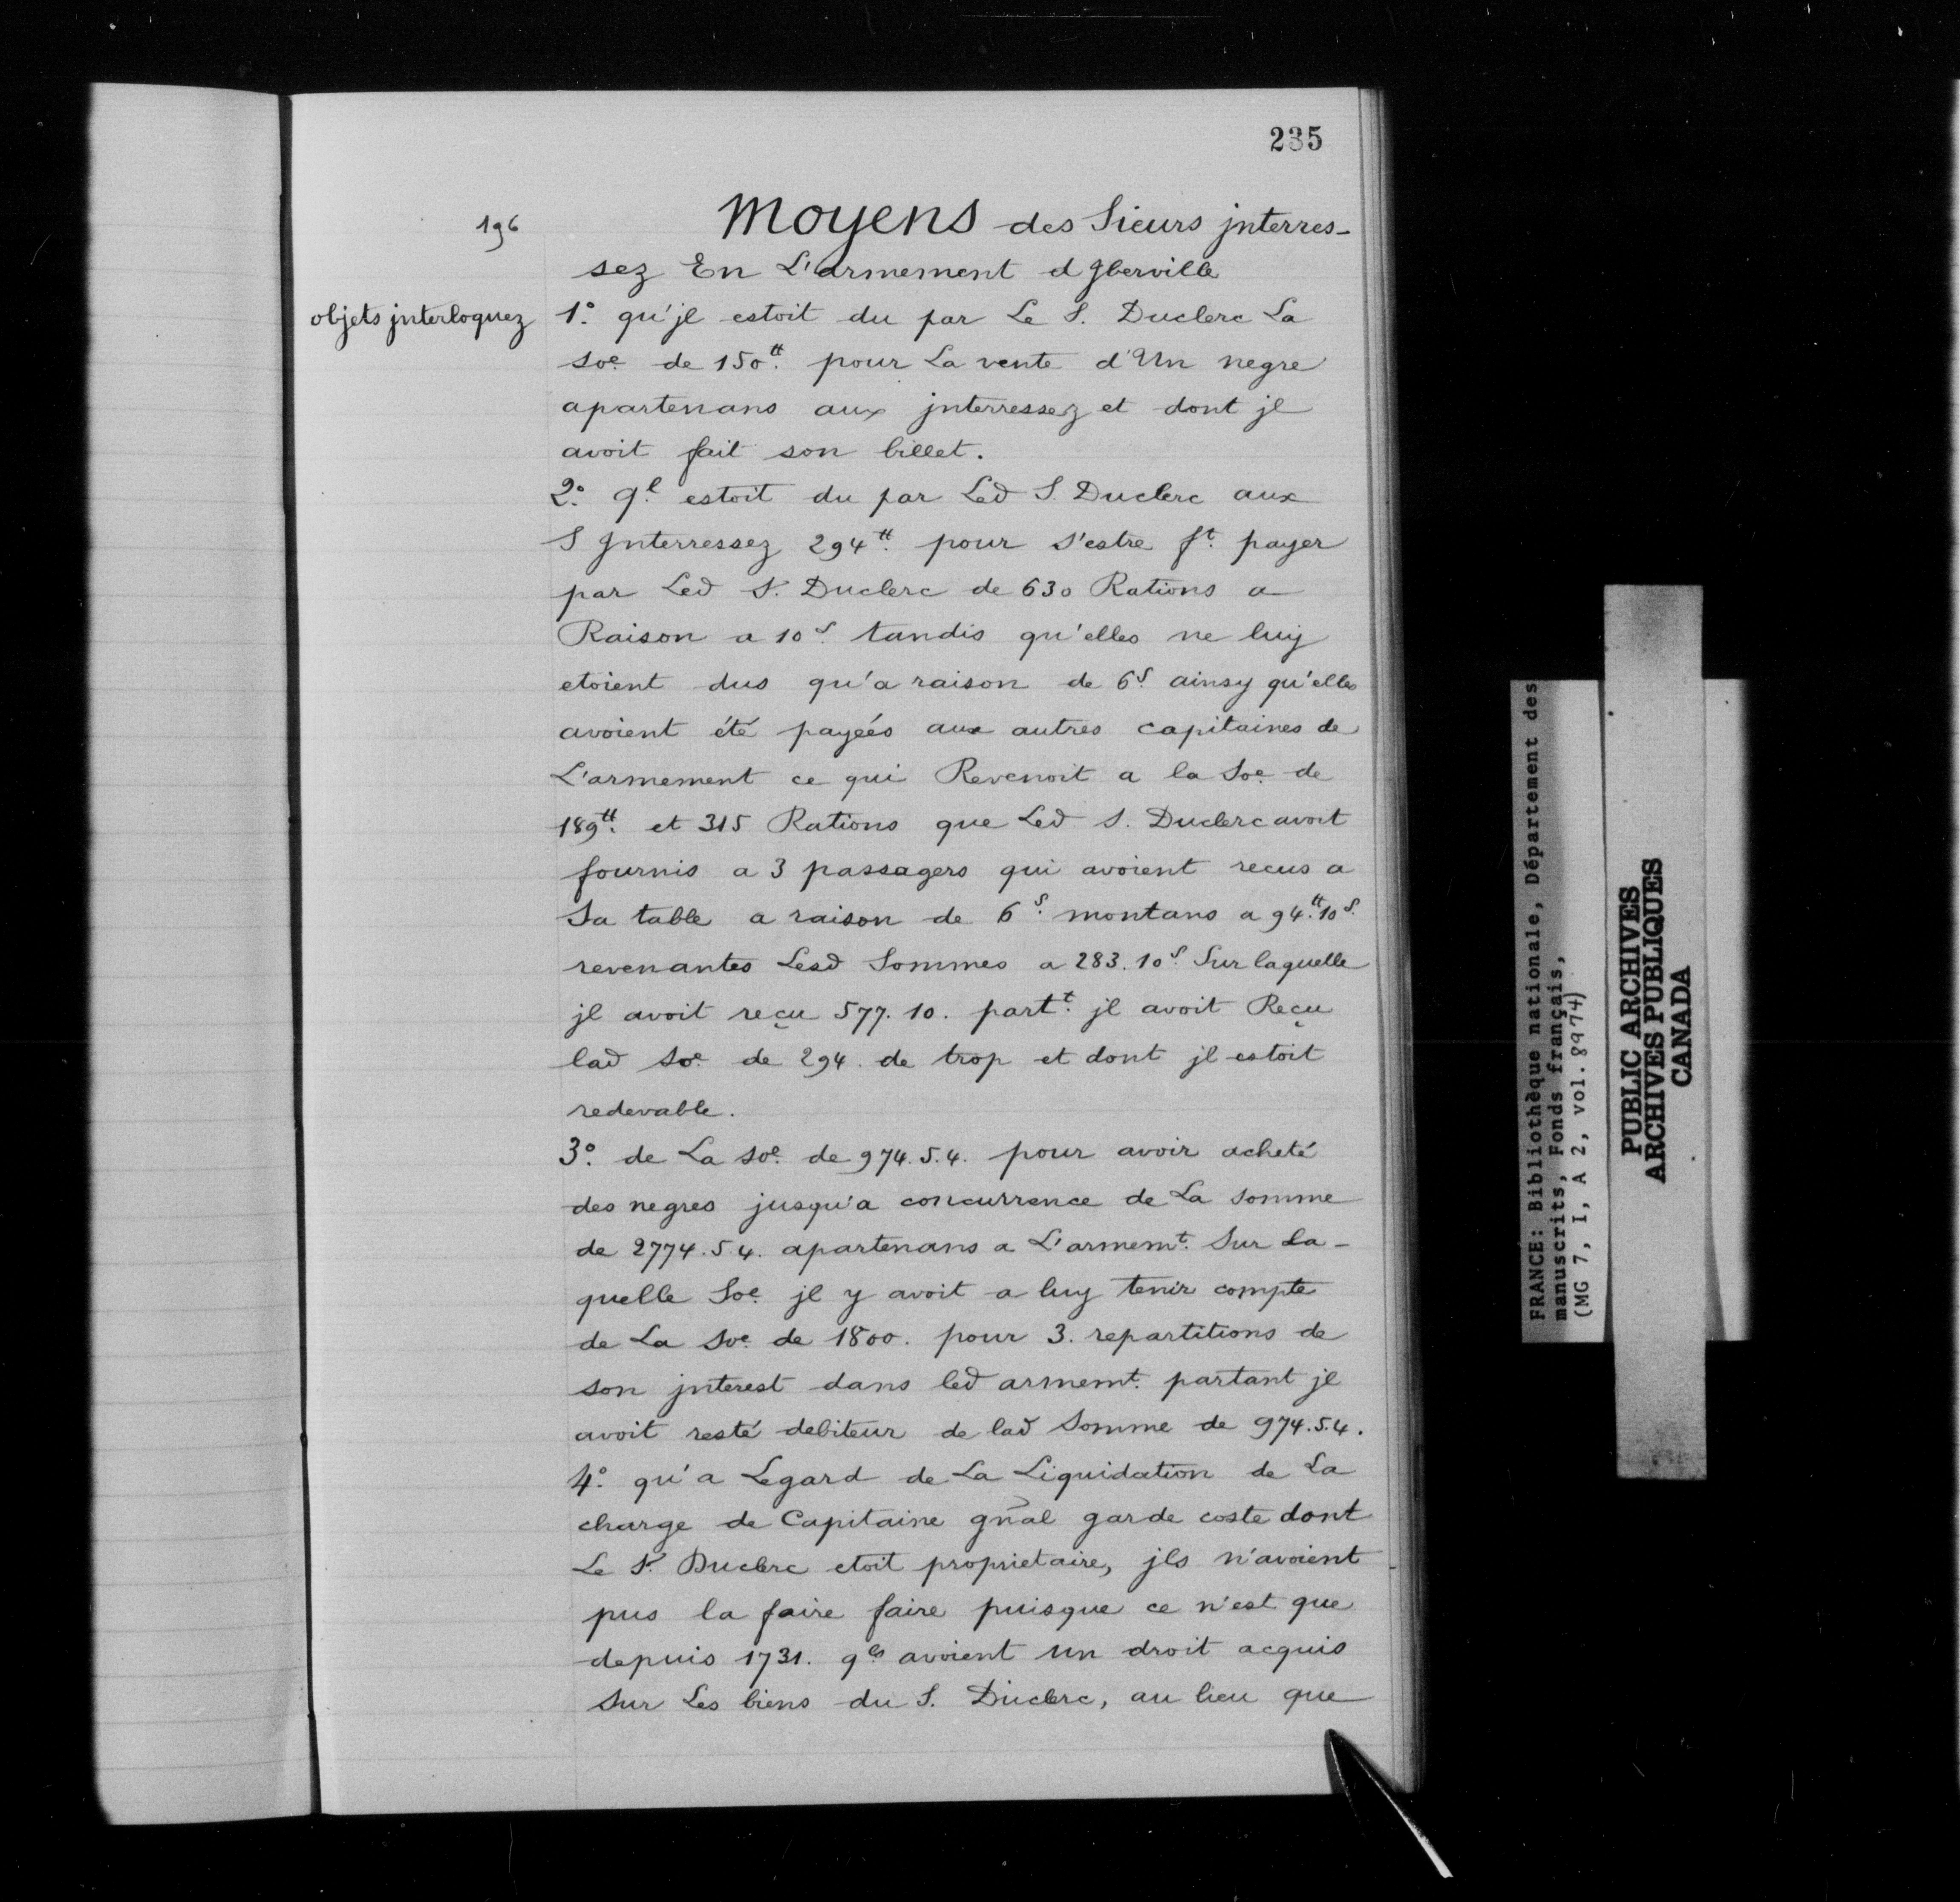 235
196
Moyens des Sieurs jnterres-
sez En L'armement d Jberville
objets jnterloquez
1.° qu'jl estoit du par Le S. Duclerc La
soe. de 150tt. pour La vente d'Un negre
apartenans aux jnterressez et dont jl
avoit fait son billet.
2.° ql. estoit du par Led S. Duclerc aux
S Jnterressez 294tt. pour s'estre ft. payer
par Led S. Duclerc de 630 Rations a
Raison a 10s. tandis qu'elles ne luy
etoient dus qu'a raison de 6s. ainsy qu'elles
avoient été payées aux autres capitaines de
L'armement ce qui Revenoit a la Soe. de
189tt. et 315 Rations que Led S. Duclerc avoit
fournis a 3 passagers qui avoient recus a
Sa table a raison de 6s. montans a 94.tt10s.
revenantes Lesd Sommes a 283.10s. Sur laquelle
jl avoit reçu 577.10. partt. jl avoit Reçu
lad soe. de 294. de trop et dont jl estoit
redevable.
3.° de La soe. de 974.5.4. pour avoir acheté
des negres jusqu'a concurrence de La somme
de 2774.5.4. apartenans a L'armemt. Sur La-
quelle Soe. jl y avoit a luy tenir compte
de La soe. de 1800. pour 3. repartitions de
son jnterest dans led armemt. partant jl
avoit resté debiteur de lad Somme de 974.5.4.
4.° qu'a Legard de La Liquidation de La
charge de Capitaine gñal garde coste dont
Le S. Duclerc etoit proprietaire, jls n'avoient
pus la faire faire puisque ce n'est que
depuis 1731. qls avoient un droit acquis
Sur Les biens du S. Duclerc, au lieu que
FRANCE: Bibliothèque nationale, Département des
manuscrits, Fonds français,
(MG 7, I, A 2, vol. 8974)
PUBLIC ARCHIVES
ARCHIVES PUBLIQUES
CANADA